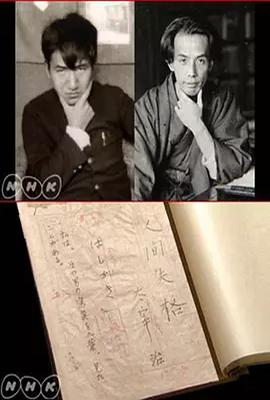 NHK
NHK
人間失格
太宰治
はしがき
私は、その男の写真を三葉、見た
ことがある。
NHK